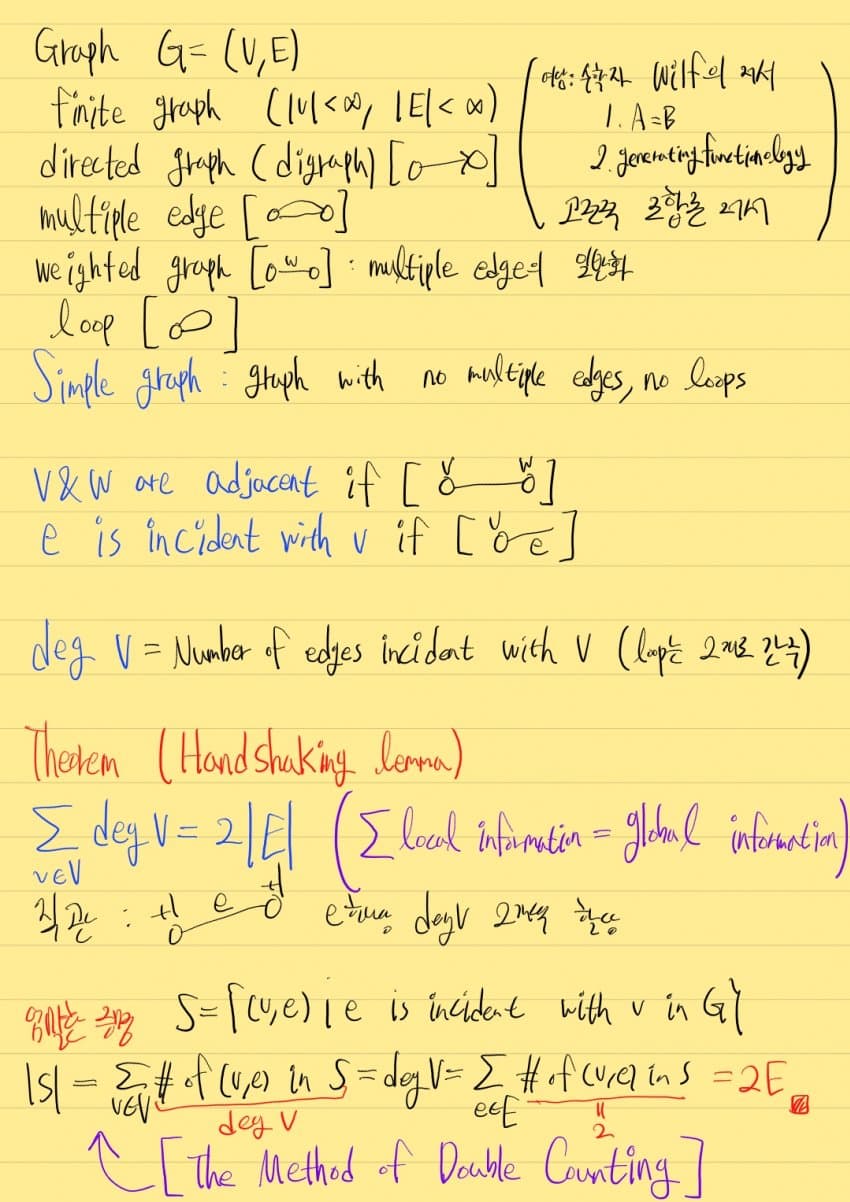 Graph G = (V, E)
finite graph (|V| < ∞, |E| < ∞)
directed graph (digraph) [ ]
multiple edge [ ]
weighted graph [ w ] : multiple edge의 일반화
loop [ ]
(여담: 수학자 Wilf의 저서
1. A=B
2. generatingfunctionology
고전적 조합론 저서)
Simple graph : graph with no multiple edges, no loops
V & W are adjacent if [ v w ]
e is incident with v if [ v e ]
deg V = Number of edges incident with V (loop는 2개로 간주)
Theorem (Handshaking lemma)
∑ deg V = 2|E| (∑ local information = global information)
v∈V
직관 : +1 e +1 e하나당 deg V 2개씩 할당
엄밀한 증명 S = {(v,e) | e is incident with v in G}
|S| = ∑ # of (v,e) in S = deg V = ∑ # of (v,e) in S = 2E
v∈V deg V e∈E 2
[The Method of Double Counting]